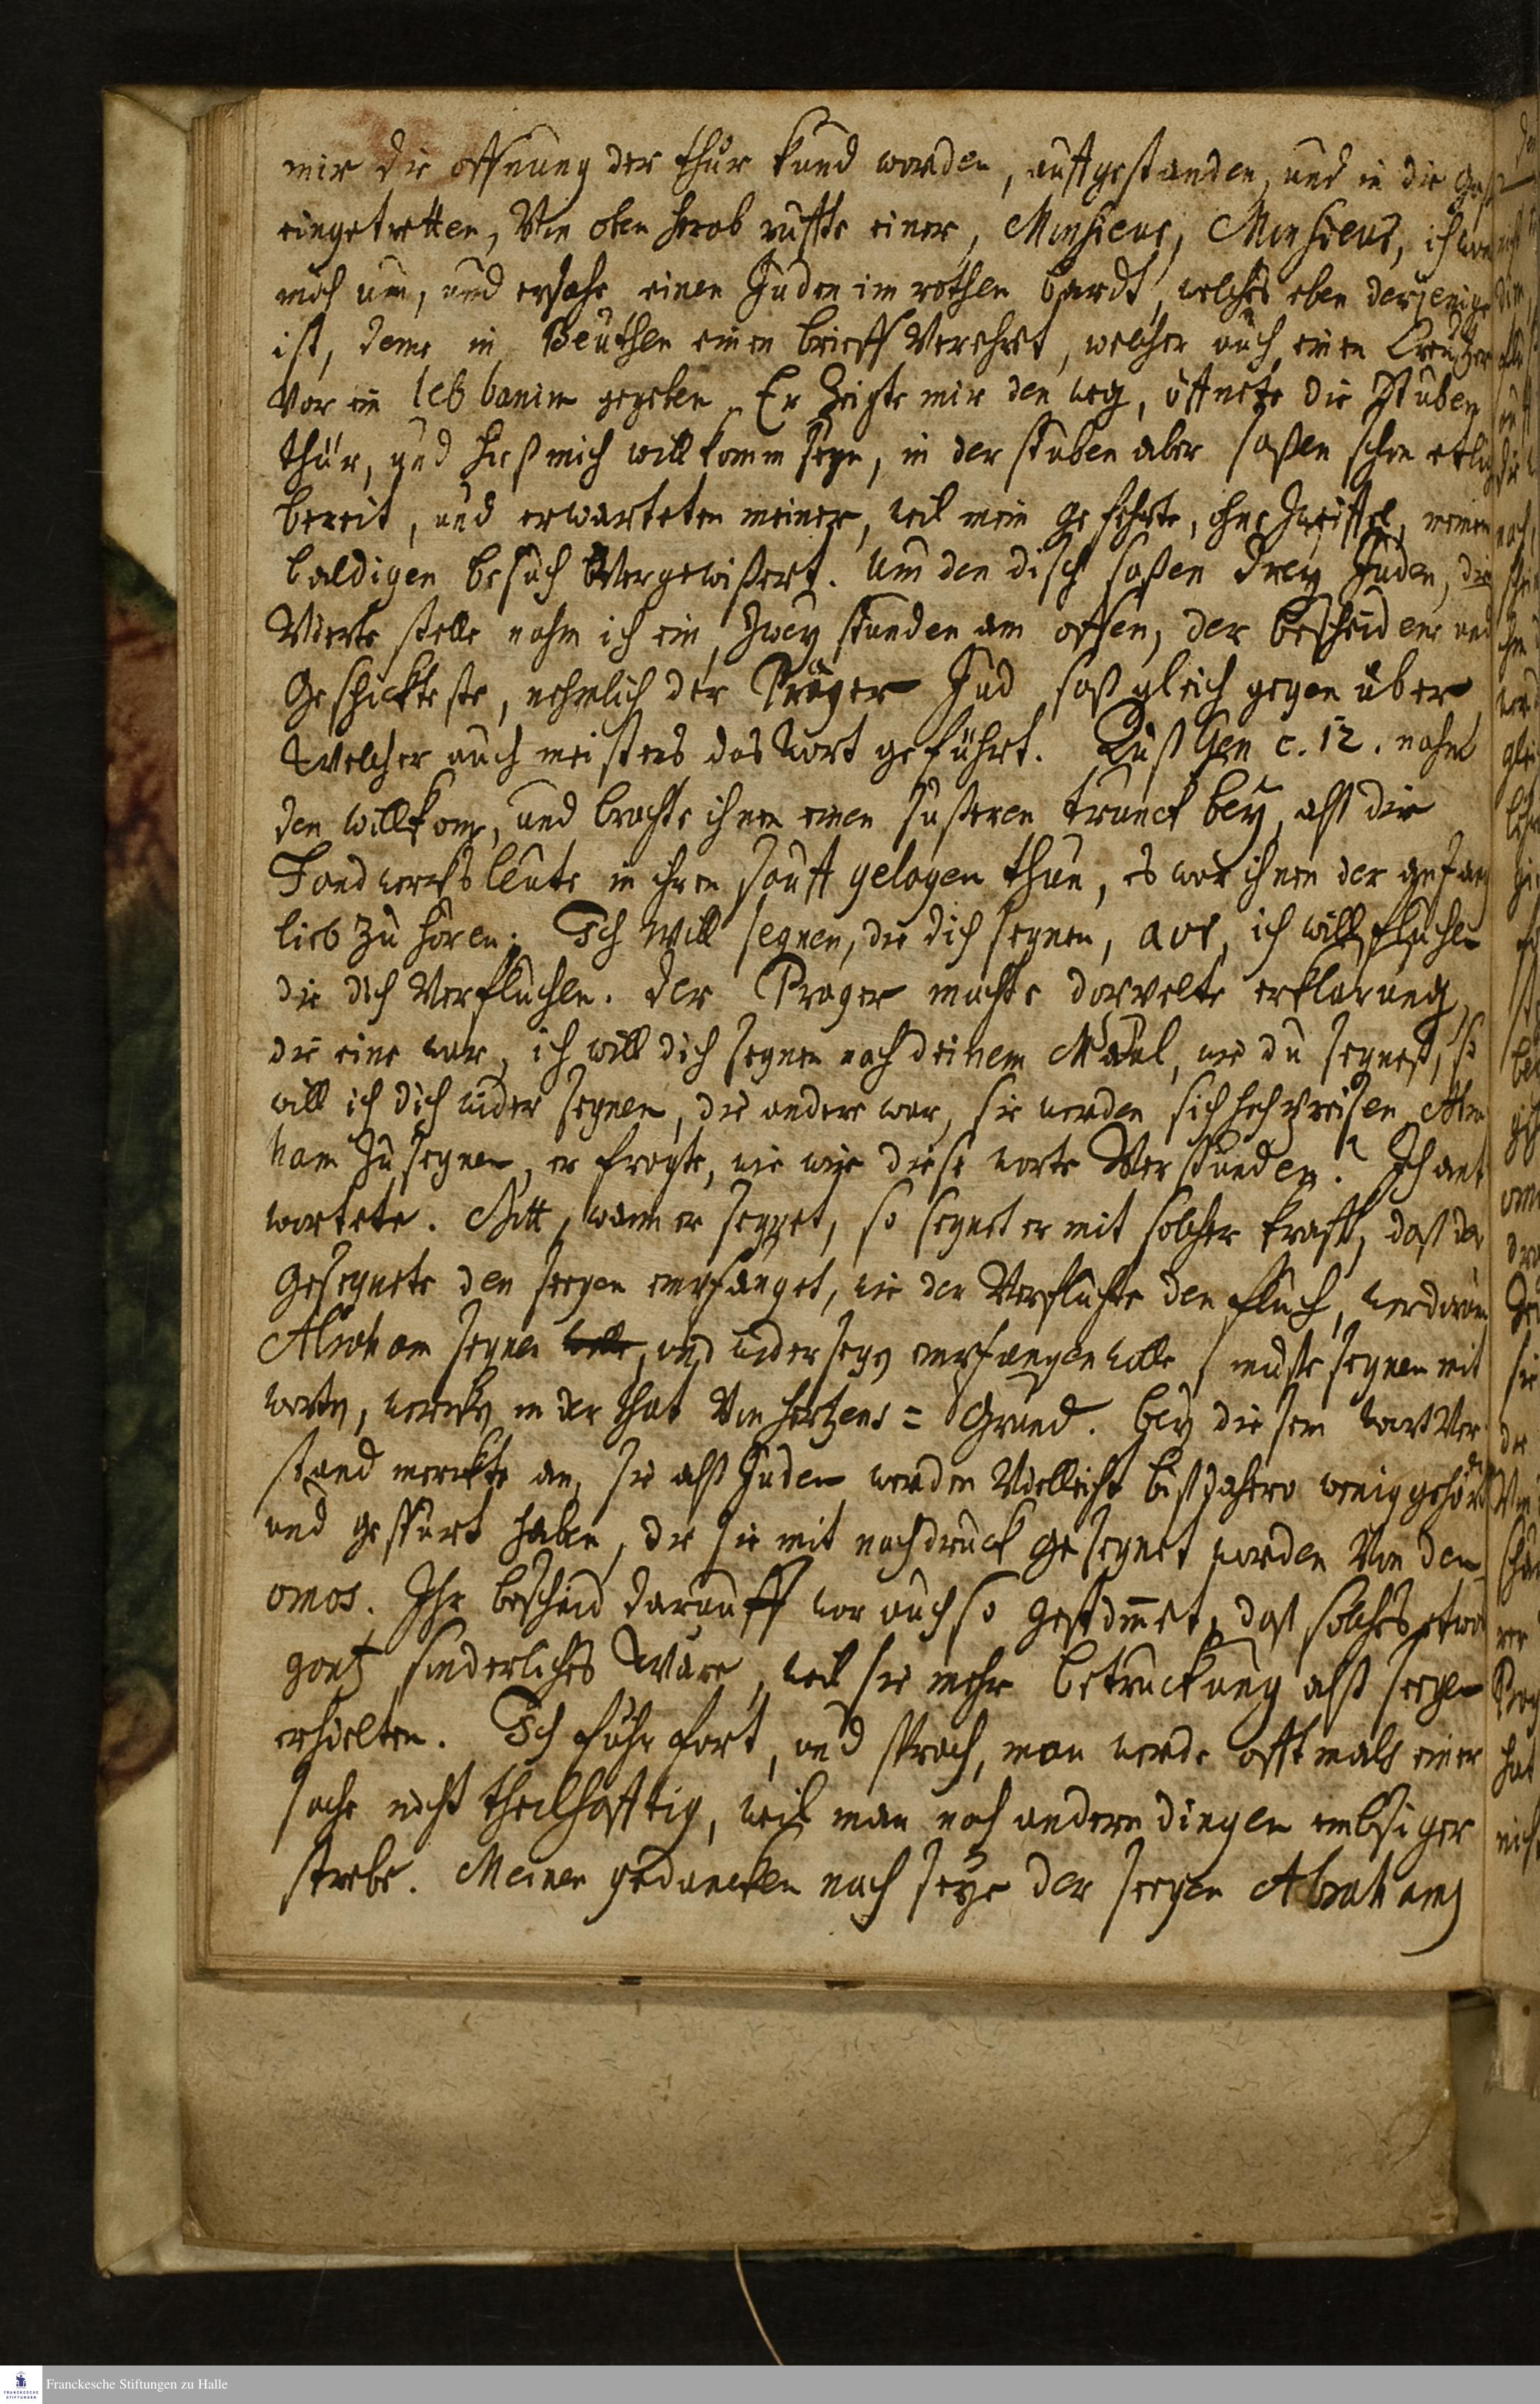 mir die öffnung der thür kund worden, auffgestanden, und in die Gaß
eingetretten, Von oben herab ruffte einer, Monsieur, Monsieur, ich wen
mich um, und ersahe einen Juden im rothen bardt, welches eben derjenige
ist, deme in Beuthen einen brieff Verehret, welcher auch einen Creutzer
Vor ein leb banim gegeben. Er Zeigte mir den weg, öffnete die Stuben
thür, und hieß mich willkomm seyn, in der stuben aber saßen schon etlich
bereit, und erwarteten meiner, weil mein gefehrte, ohne Zweiffel, meinen
baldigen besuch Vergewißert. Um den disch saßen drey Juden, die
Vierte stelle nahm ich ein, Zwey stunden am offen, der bescheidene und
Geschickteste, nehmlich der Prager Jud saß gleich gegen über
Welcher auch meistens das wort geführt. Auß Gen c. 12. nahm
den willkom, und brachte ihnen einen süßeren trunck bey, alß die
Handwercksleute in ihren sauff gelagen thun, es war ihnen der anfang
lieb zu hören: Ich Will segnen, die dich segnen, aor, ich will fluchen
die dich Verfluchen. der Prager machte doppelte erklärung
die eine war, ich will dich segnen nach deinem Maul, wie du segnest, so
will ich dich wider segnen, die andere war, sie werden sich hochpreisen Abra
ham zu segnen, er fragte, wie wir diese worte Verstünden? Ich ant
wortete. Gott, wann er segnet, so segnet er mit solcher krafft, daß der
Gesegnete den seegen empfänget, wie der Verfluchte den fluch, wer darum
Abraham segnen wolle, und wider segen empfangen wolle, müste segnen mit
worten, wercken in der that Von hertzens = Grund. bey diesem wort Ver
stand merckte an, sie alß Juden werden Vielleicht biß dahero wenig gehört
und gespürt haben, die sie mit nachdruck gesegnet worden Von den
omos. Ihr bescheid darauff war auch so gestimmet, daß solches etwas
gantz sonderliches Wäre, weil sie mehr betruckung alß seegen
erhielten. Ich fuhr fort, und sprach, man werde offtmals einer
sache nicht theilhafftig, weil man nach andern dingen embsiger
strebe. Meinen gedancken nach seye der seegen Abrahams
Franckesche Stiftungen zu Halle